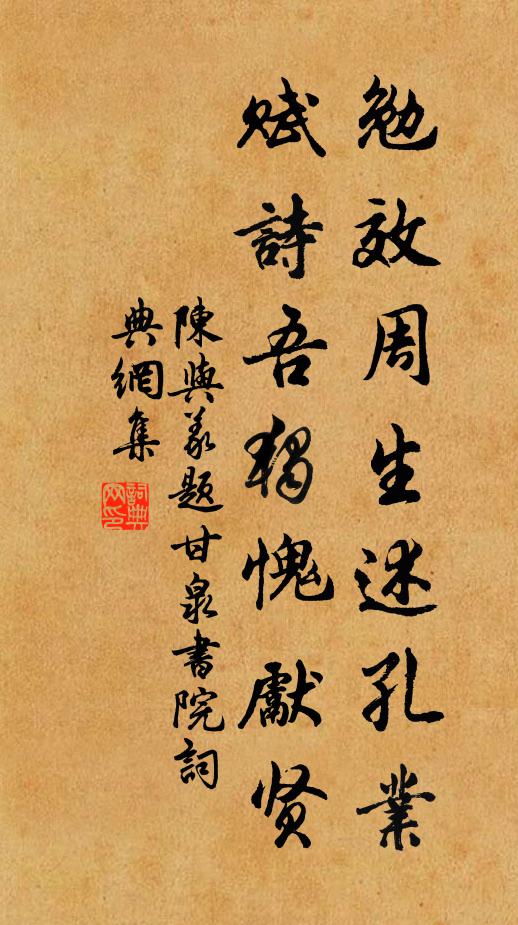 勉效周生述孔業
賦詩吾獨愧獻贤
陳與義題甘泉書院詞
典網集
詞典網印